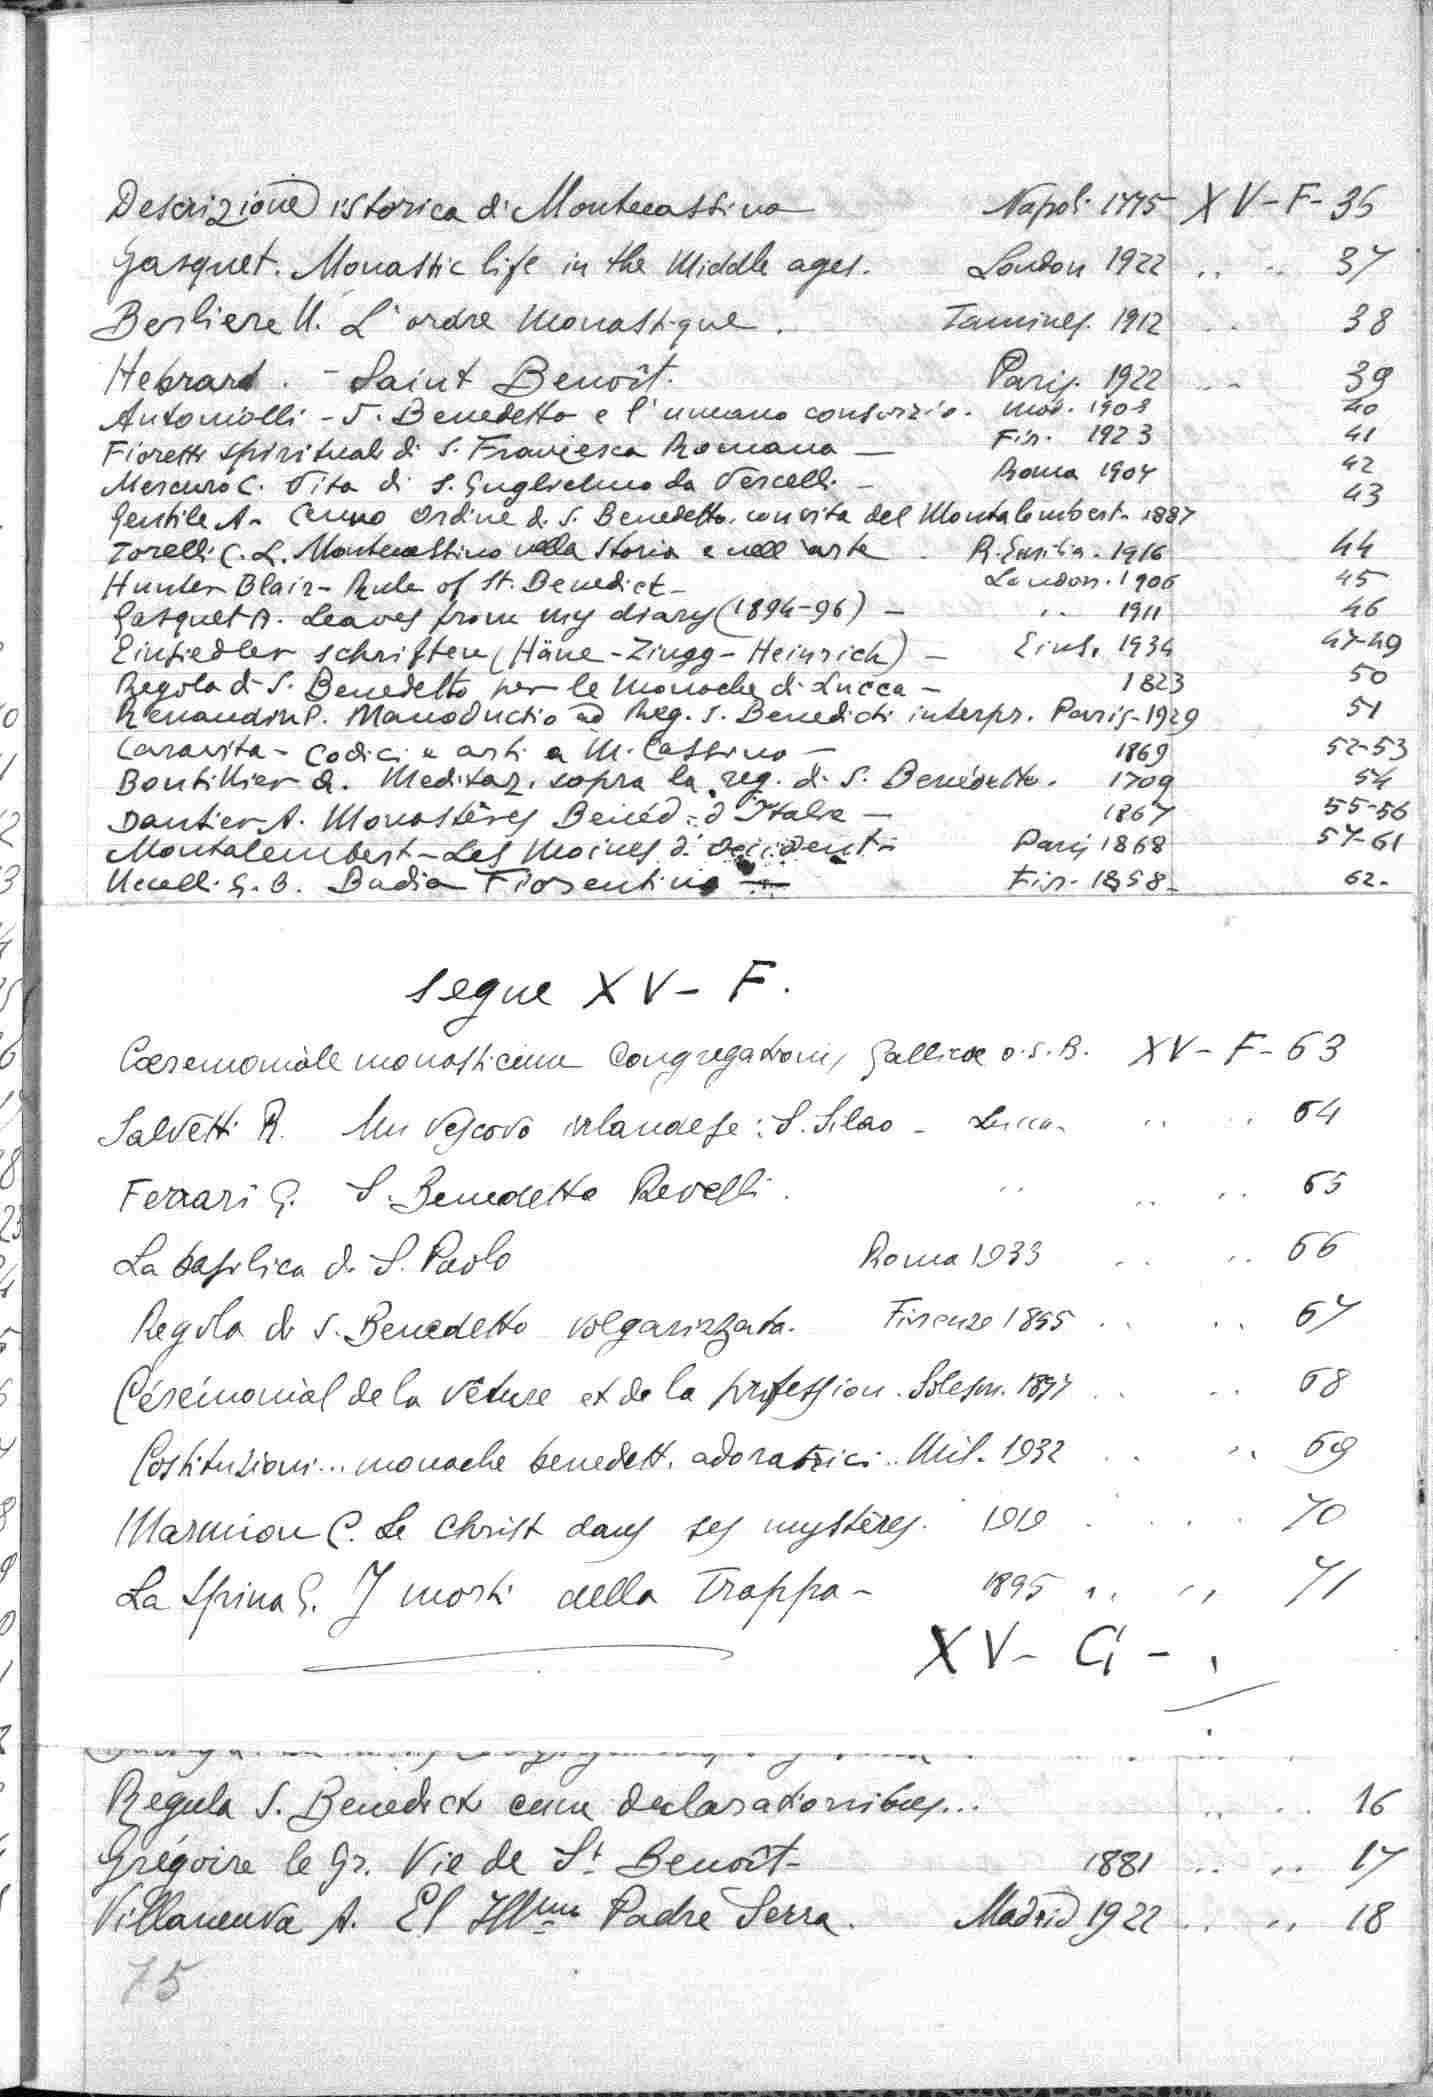 Descrizione istorica di Montecassino Napoli 1775 XV-F-36
Gasquet. Monastic life in the Middle ages. London 1922 " " 37
Berliere U. L'ordre monastique. Tamines. 1912 " " 38
Hebrard. - Saint Benoît. Paris. 1922 " " 39
Antoniolli - S. Benedetto e l'umano consorzio. Mod. 1908 40
Fioretti spirituali di S. Francesca Romana - Fir. 1923 41
Mercuro C. Vita di S. Guglielmo da Vercelli - Roma 1907 42
Gentile A- Cenno Ordine di S. Benedetto. con vita del Montalembert- 1887 43
Torelli C. L. Montecassino nella storia e nell'arte R. Emilia. 1916 44
Hunter Blair - Rule of St. Benedict - London. 1906 45
Gasquet A. Leaves from my diary (1894-96) - " 1911 46
Einsiedler schriften (Häne - Zingg - Heinrich) - Eins. 1934 47-49
Regola di S. Benedetto per le monache di Lucca - 1823 50
Renaudin P. Manoductio ad Reg. S. Benedicti interpr. Paris-1929 51
Caravita - Codici e arti a M. Cassino - 1869 52-53
Boutillier A. Meditaz. sopra la reg. di S. Benedetto. 1709 54
Dantier A. Monastères Bénéd. d'Italie - 1867 55-56
Montalembert - Les Moines d'occident - Paris 1868 57-61
Uccelli G. B. Badia Fiorentina - Fir. 1858- 62-
segue XV-F.
Cæremoniale monasticum Congregationis Gallicæ O.S.B. XV-F-63
Salvetti R. Un Vescovo irlandese: S. Silao - Lucca- " " 64
Ferrari G. S. Benedetto Revelli. " " " 65
La basilica di S. Paolo Roma 1933 " " 66
Regola di S. Benedetto volgarizzata. Firenze 1855 " " 67
Cérémonial de la vêture et de la profession. Solesm. 1897 " " 68
Costituzioni... monache benedett. adoratrici.. Mil. 1932 " " 69
Marmion C. Le Christ dans ses mystères. 1919 " " 70
La Spina G. I morti della Trappa - 1895 " " 71
XV-G-
Regula S. Benedicti cum declarationibus... " " 16
Grégoire le Gr. Vie de St Benoît- 1881 " " 17
Villanueva A. El Illmo Padre Serra. Madrid 1922 " " 18
75